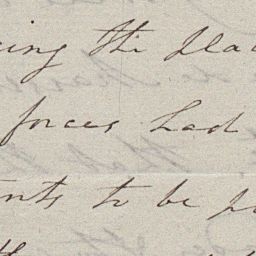 ing the pla
forces had
nts to be p